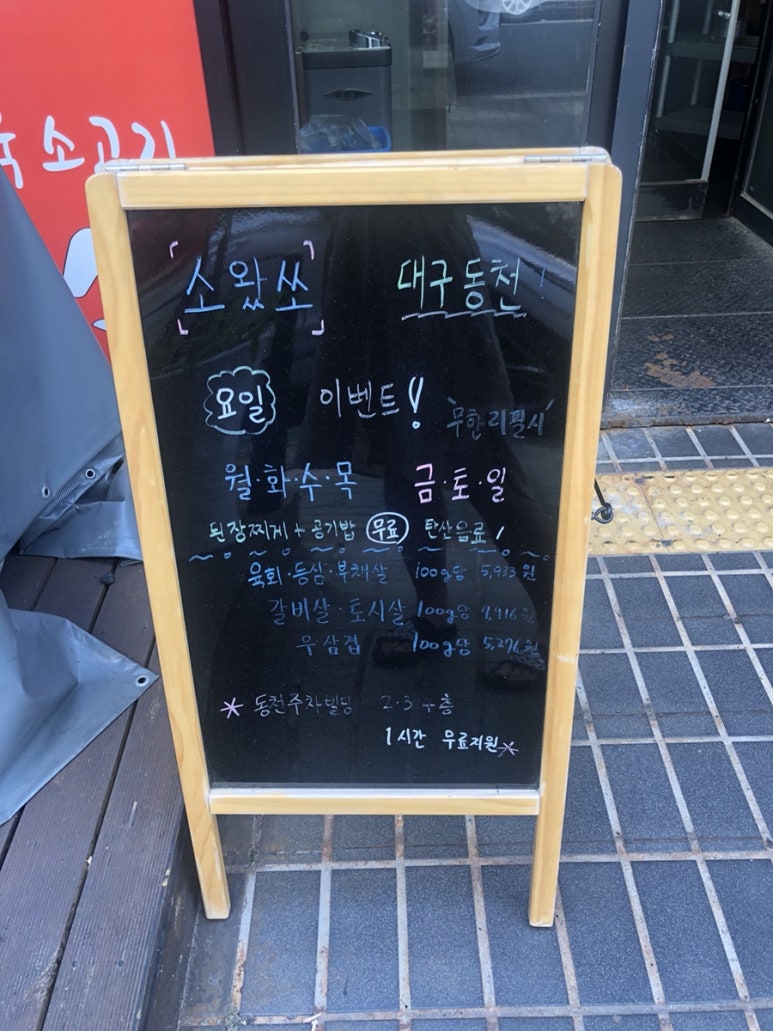 소고기
소왔쏘 대구동천!
요일 이벤트! '무한리필시'
월·화·수·목 금·토·일
된장찌게+공기밥 무료 탄산음료!
육회·등심·부채살 100g당 5,933원
갈비살·토시살 100g당 7,916원
우삼겹 100g당 5,276원
* 동천주차빌딩 2·3·4층
1시간 무료지원*